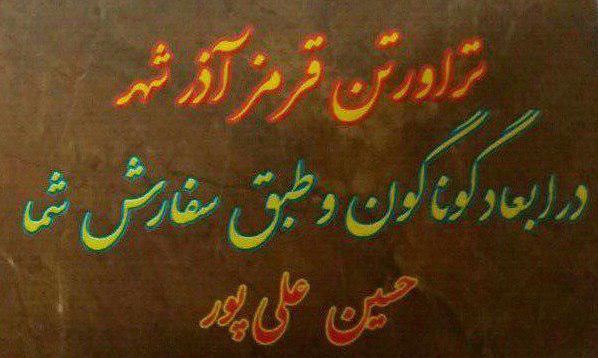 تراورتن قرمز آذر شهر
در ابعاد گوناگون و طبق سفارش شما
حسین علی پور